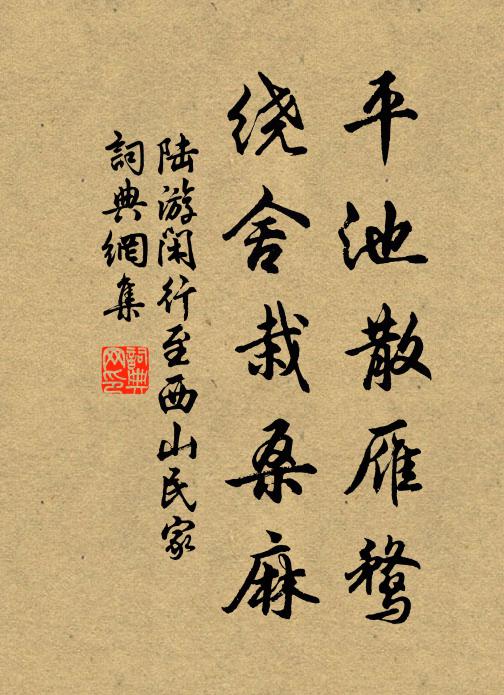 平池散雁鹜
绕舍栽桑麻
陆游闲行至西山民家
詞典網集
詞典网印